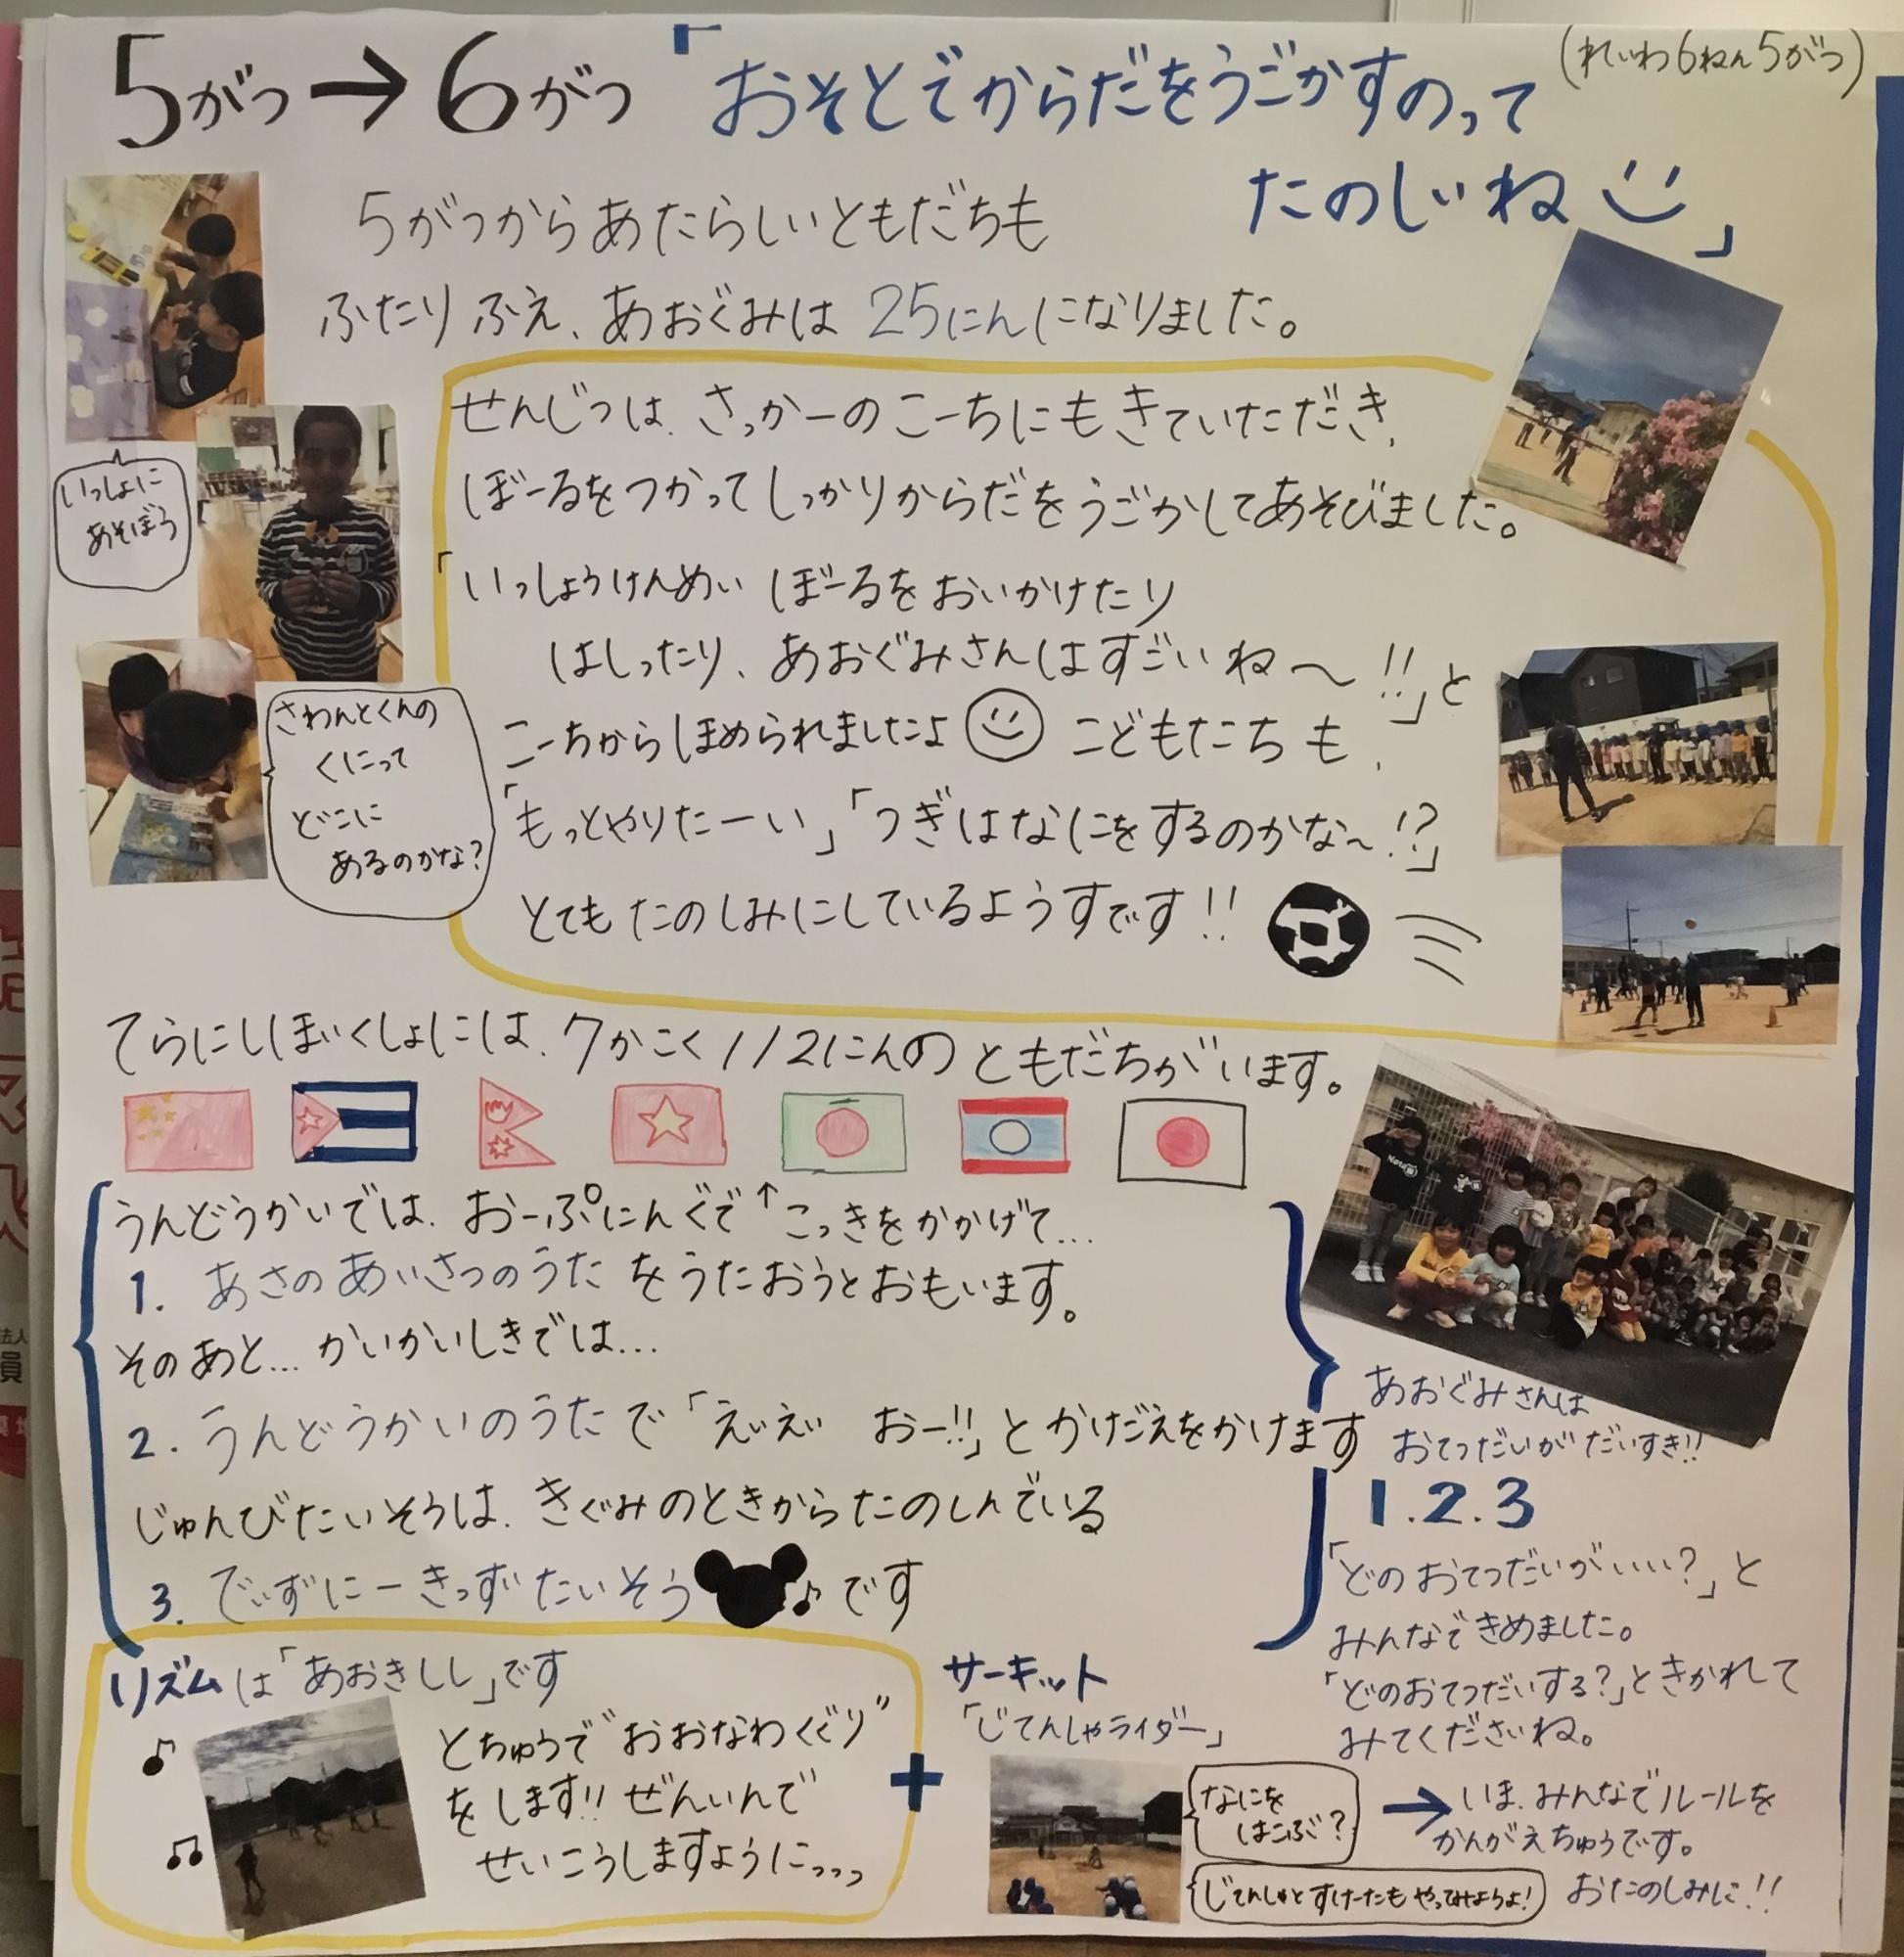 5がつ→6がつ「おそとでからだをうごかすのって
(れいわ6ねん5がつ)
たのしいね」
5がつからあたらしいともだちも
ふたりふえ、あおぐみは25にんになりました。
せんじつは、さっかーのこーちにもきていただき、
ぼーるをつかってしっかりからだをうごかしてあそびました。
「いっしょうけんめいぼーるをおいかけたり
はしったり、あおぐみさんはすごいね〜!!」と
こーちからほめられましたよ こどもたちも、
「もっとやりたーい」「つぎはなにをするのかな〜!?」
とてもたのしみにしているようすです!!
いっしょに
あそぼう
さわんとくんの
くにって
どこに
あるのかな?
てらにしほいくしょには、7かこく112にんのともだちがいます。
うんどうかいでは、おーぷにんぐで↑こっきをかかげて...
1. あさのあいさつのうたをうたおうとおもいます。
そのあと...かいかいしきでは...
2. うんどうかいのうたで「えいえい おー!!」とかけごえをかけます
じゅんびたいそうは、きぐみのときからたのしんでいる
3. でぃずにーきっずたいそう♪です
あおぐみさんは
おてつだいがだいすき!!
1.2.3
「どのおてつだいがいい?」と
みんなできめました。
「どのおてつだいする?」ときかれて
みてくださいね。
リズムは「あおきしし」です
とちゅうで"おおなわくぐり"
をします!!ぜんいんで
せいこうしますように...
+
サーキット
「じてんしゃライダー」
なにを
はこぶ?
→いま、みんなでルールを
かんがえちゅうです。
おたのしみに!!
じてんしゃとすけーたもやってみようよ!
法人
員